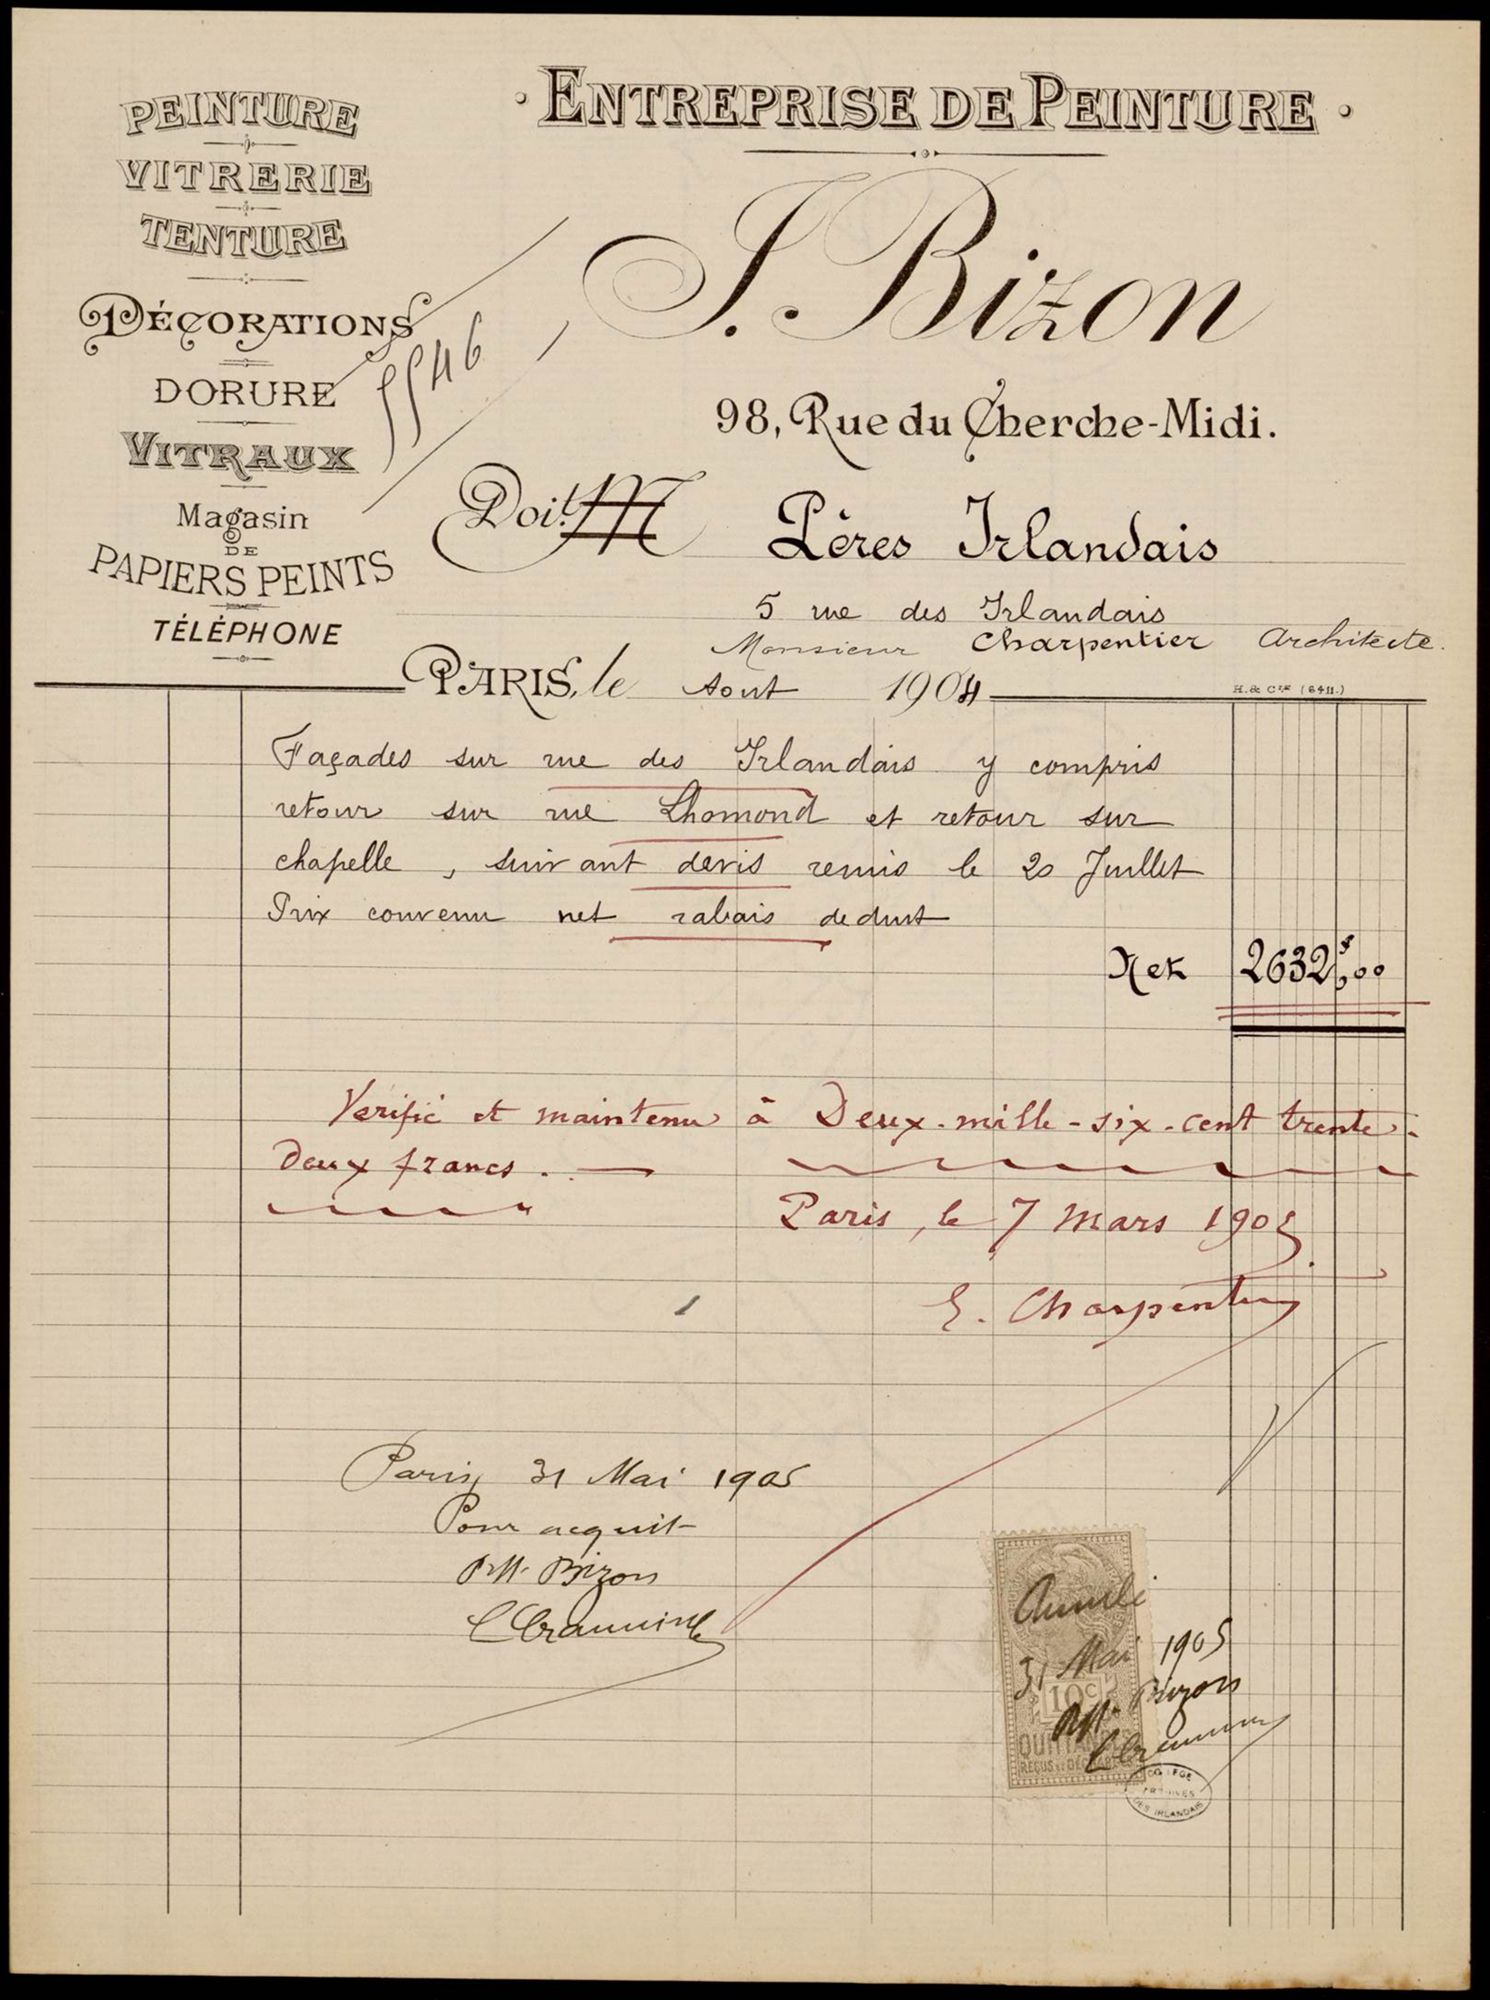 PEINTURE
VITRERIE
TENTURE
DÉCORATIONS
DORURE
VITRAUX
Magasin
DE
PAPIERS PEINTS
TÉLÉPHONE
5546
· ENTREPRISE DE PEINTURE ·
J. Bizon
98, Rue du Cherche-Midi.
Doit M Pères Irlandais
5 rue des Irlandais
Monsieur Charpentier Architecte.
PARIS, le Aout 1904
H. & Cie (6411.)
Façades sur rue des Irlandais y compris
retour sur rue Lhomond et retour sur
chapelle, suivant devis remis le 20 Juillet
Prix convenu net rabais deduit
Net 2632f,00
Verifié et maintenu à Deux-mille-six-cent trente-
Deux francs.
Paris, le 7 Mars 1905.
E. Charpentier
Paris, 31 Mai 1905
Pour acquit
Bizon
Annulé
31 Mai 1905
10c
Bizon
QUITTANCES
REÇUS ET DÉCHARGES
COLLEGE
ARCHIVES
DES IRLANDAIS